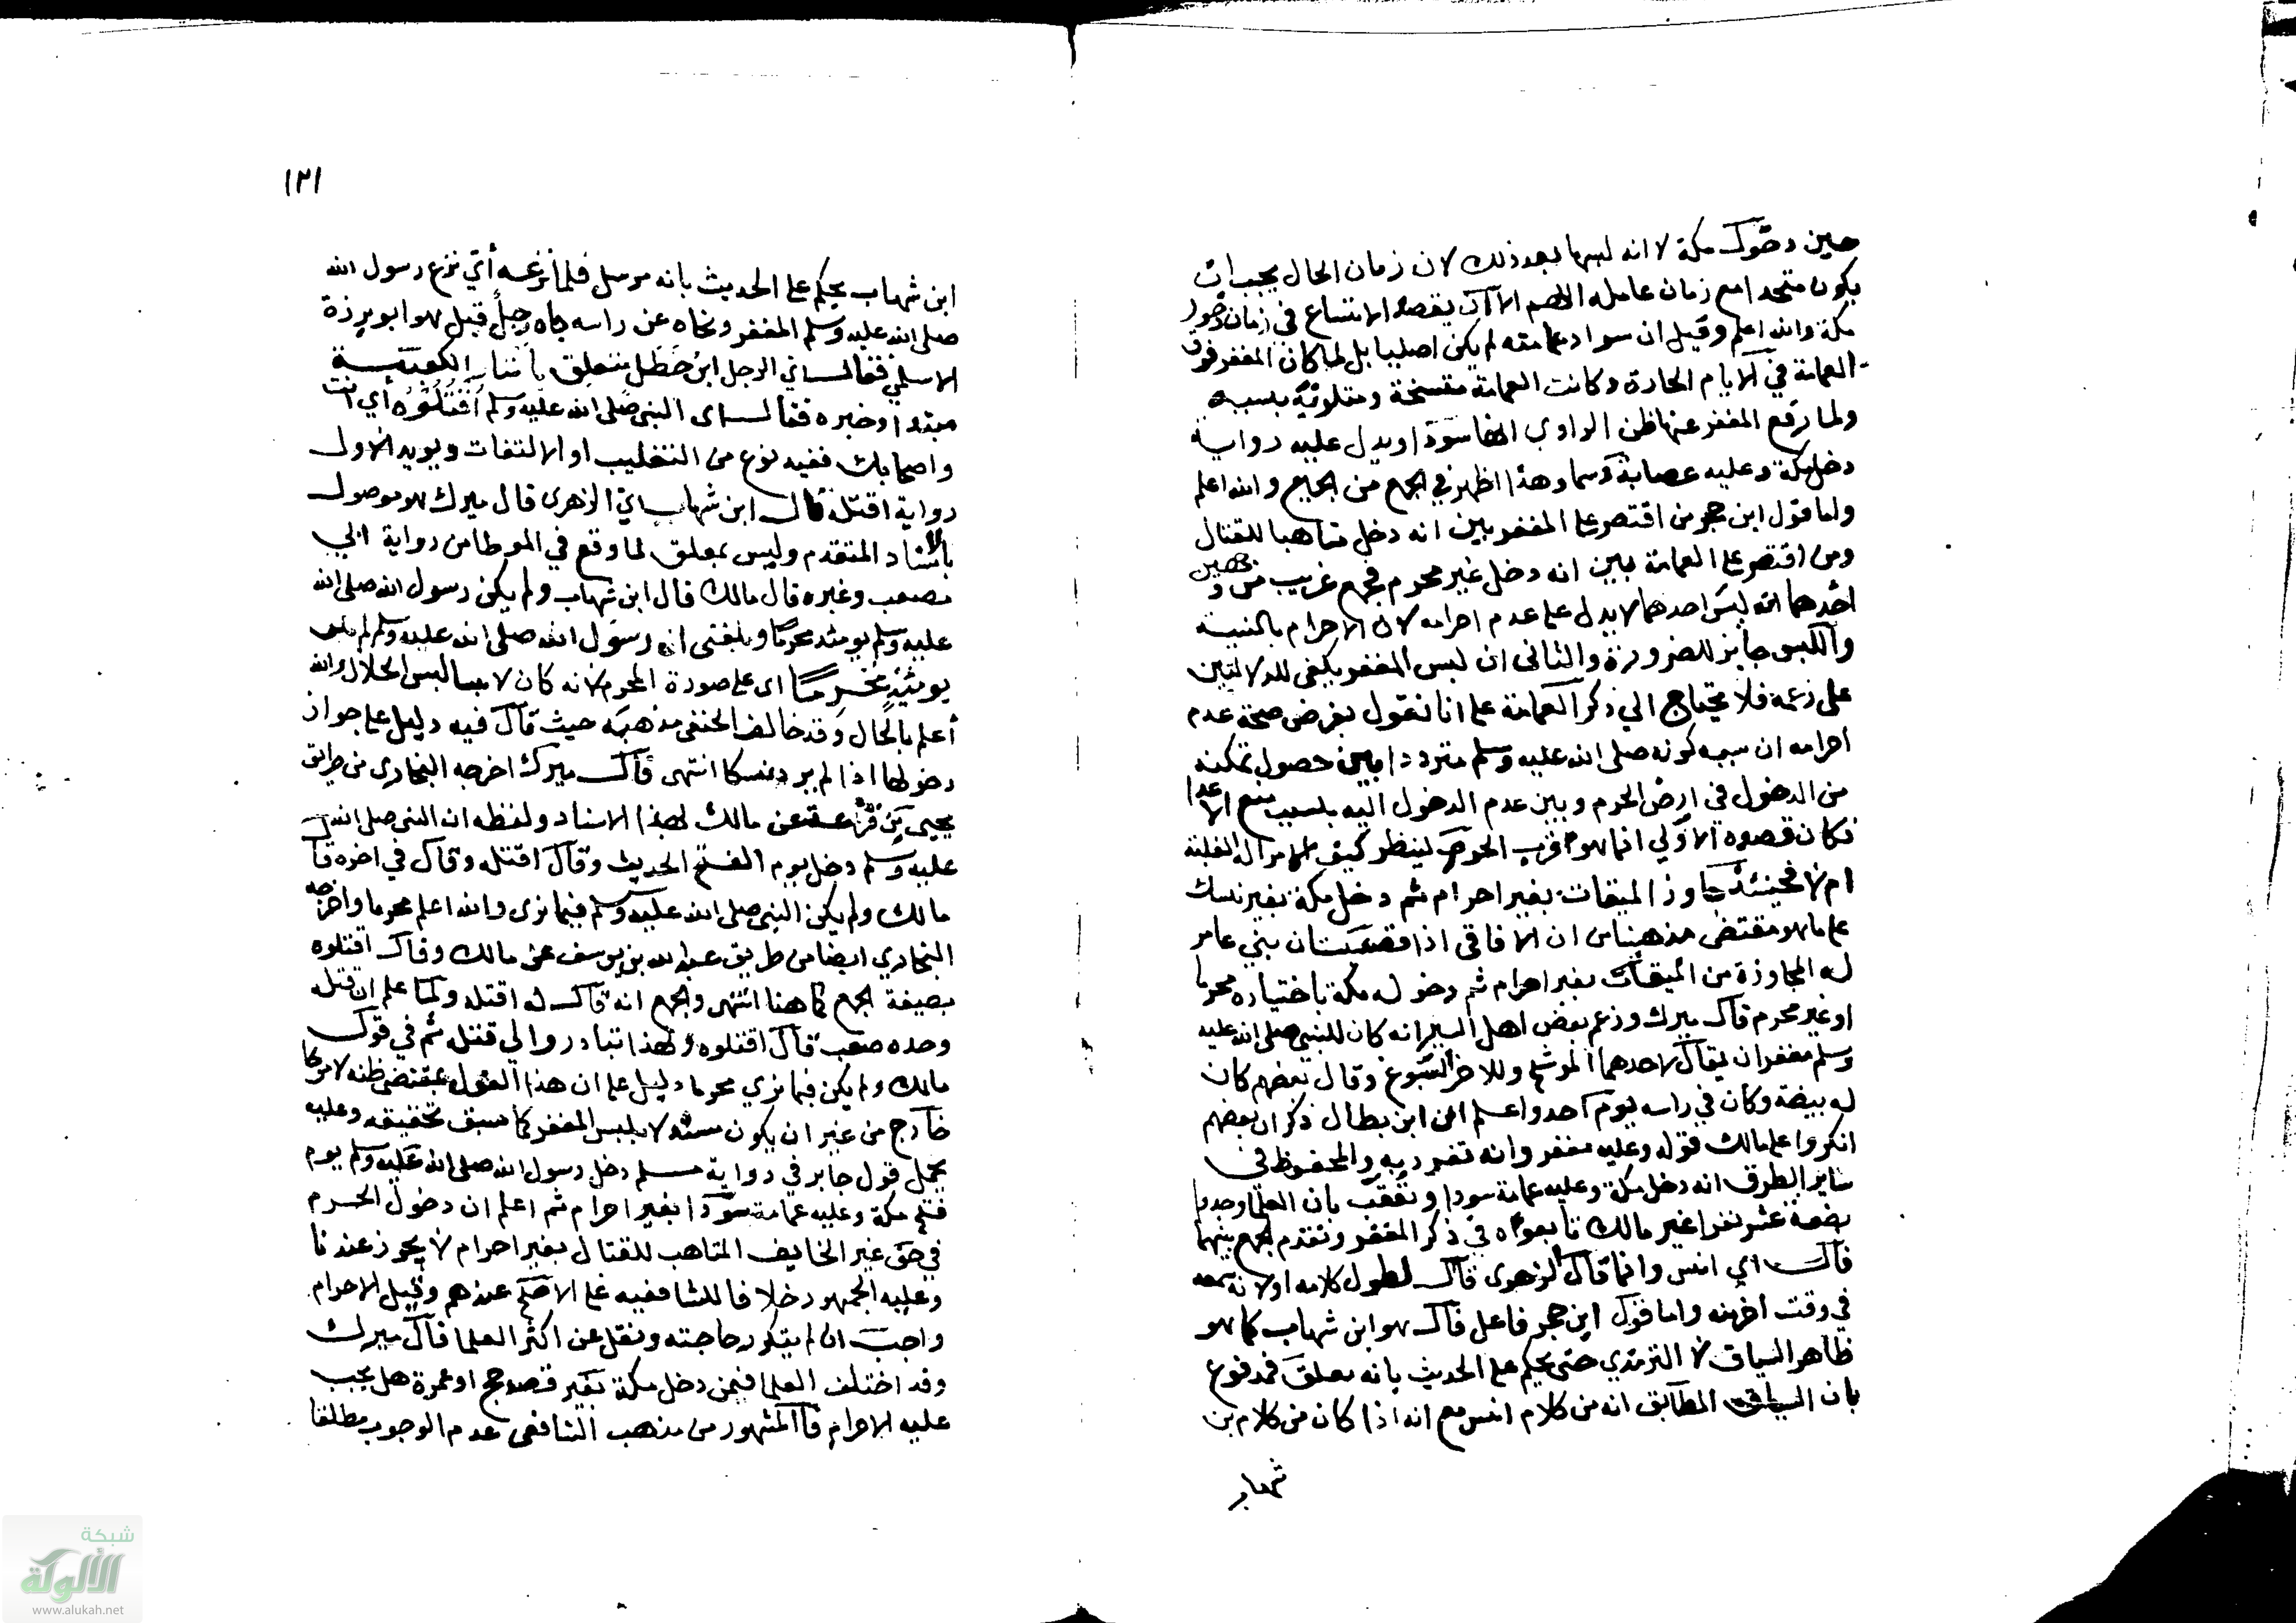 حين دخول مكة لا انه لبسها بعد ذلك لان زمان الحال يجب ان
يكون متحدا مع زمان عامله اللهم الا ان يقصد الاتساع في زمان دخول
مكة والله اعلم وقيل ان سواد عمامته لم يكن اصليا بل لما كان المغفر فوق
العمامة في الايام الحارة وكانت العمامة متسخة ومتلوثة بسببه
ولما رفع المغفر عنها ظن الراوي انها سودا ويدل عليه رواية
دخل مكة وعليه عصابة دسما وهذا اظهر في الجمع من الجميع والله اعلم
واما قول ابن حجر من اقتصر على المغفر بين انه دخل متاهبا للقتال
ومن اقتصر على العمامة بين انه دخل غير محرم فجمع غريب من وجهين
احدهما انه لبس احدهما لا يدل على عدم احرامه لان الاحرام بالنية
واللبس جايز للضرورة والثاني ان لبس المغفر يكفي للدلالتين
على زعمه فلا يحتاج الي ذكر العمامة على انا نقول بفرض صحة عدم
احرامه ان سببه كونه صلى الله عليه وسلم مترددا بين حصول تمكنه
من الدخول في ارض الحرم وبين عدم الدخول اليه بسبب منع الاعدا
فكان قصده الاولي انما هو قرب الحرم لينظر كيف الامر اله الغلبة
ام لا فحينئذ جاوز الميقات بغير احرام ثم دخل مكة بغير نسك
على ما هو مقتضى مذهبنا من ان الافاقي اذا قصد بستان بني عامر
له المجاوزة من الميقات بغير احرام ثم دخوله مكة باختياره محرما
او غير محرم قال ميرك وزعم بعض اهل السير انه كان للنبي صلى الله عليه
وسلم مغفران يقال لاحدهما الموشح وللاخر السبوغ وقال بعضهم كان
له بيضة وكان في راسه يوم احد واعلم ان ابن بطال ذكر ان بعضهم
انكروا على مالك قوله وعليه مغفر وانه تفرد به والمحفوظ في
ساير الطرق انه دخل مكة وعليه عمامة سودا وتعقب بان العلما وجدوا
بضعة عشر نفرا غير مالك تابعوه في ذكر المغفر وتقدم الجمع بينهما
قال اي انس وانما قال الزهري قال لطول كلامه او لانه سمعه
في وقت اخر منه واما قول ابن حجر فاعل قال هو ابن شهاب كما هو
ظاهر السياق لا الترمذي حتى يحكم على الحديث بانه معلق فمدفوع
بان السياق المطابق انه من كلام انس مع انه اذا كان من كلام بن
شهاب
١٢١
ابن شهاب يحكم على الحديث بانه مرسل فلما نزعه أي نزع رسول الله
صلى الله عليه وسلم المغفر ونحاه عن راسه جاه رجل قيل هو ابو برزة
الاسلمي فقال اي الرجل ابن خطل متعلق باستار الكعبة
مبتدا وخبره فقال اي النبي صلى الله عليه وسلم اقتلوه أي انت
واصحابك ففيه نوع من التغليب او الالتفات ويويد الاول
رواية اقتله قال ابن شهاب اي الزهري قال ميرك هو موصول
بالاسناد المتقدم وليس بمعلق لما وقع في الموطا من رواية ابي
مصعب وغيره قال مالك قال ابن شهاب ولم يكن رسول الله صلى الله
عليه وسلم يومئذ محرما وبلغني ان رسول الله صلى الله عليه وسلم لم يكن
يومئذ محرما اى على صورة المحرم لانه كان لابسا لبس الحلال والله
أعلم بالحال وقد خالف الحنفي مذهبه حيث قال فيه دليل على جواز
دخولها اذا لم يرد نسكا انتهى قال ميرك اخرجه البخاري من طريق
يحيى بن قزعة عن مالك لهذا الاسناد ولفظه ان النبي صلى الله
عليه وسلم دخل يوم الفتح الحديث وقال اقتله وقال في اخره قال
مالك ولم يكن النبي صلى الله عليه وسلم فيما نرى والله اعلم محرما واخرجه
البخاري ايضا من طريق عبد الله بن يوسف عن مالك وقال اقتلوه
بصيغة الجمع كما هنا انتهى والجمع انه قال له اقتله ولما علم ان قتله
وحده صعب قال اقتلوه ولهذا تبادروا الي قتله ثم في قول
مالك ولم يكن فيما نري محرما دليل على ان هذا القول بمقتضى ظنه لا
خارج من غير ان يكون لا بلبس المغفر كما سبق تحقيقه وعليه
يحمل قول جابر في رواية مسلم دخل رسول الله صلى الله عليه وسلم يوم
فتح مكة وعليه عمامة سودا بغير احرام ثم اعلم ان دخول الحرم
في حق غير الخايف المتاهب للقتال بغير احرام لا يجوز عندنا
وعليه الجمهور خلافا للشافعيه على الاصح عندهم وقيل الاحرام
واجب ان لم يتكرر حاجته ونقل عن اكثر العلما قال ميرك
وقد اختلف العلما فيمن دخل مكة بغير قصد حج او عمرة هل يجب
عليه الاحرام فالمشهور من مذهب الشافعي عدم الوجوب مطلقا
شبكة
الألوكة
www.alukah.net